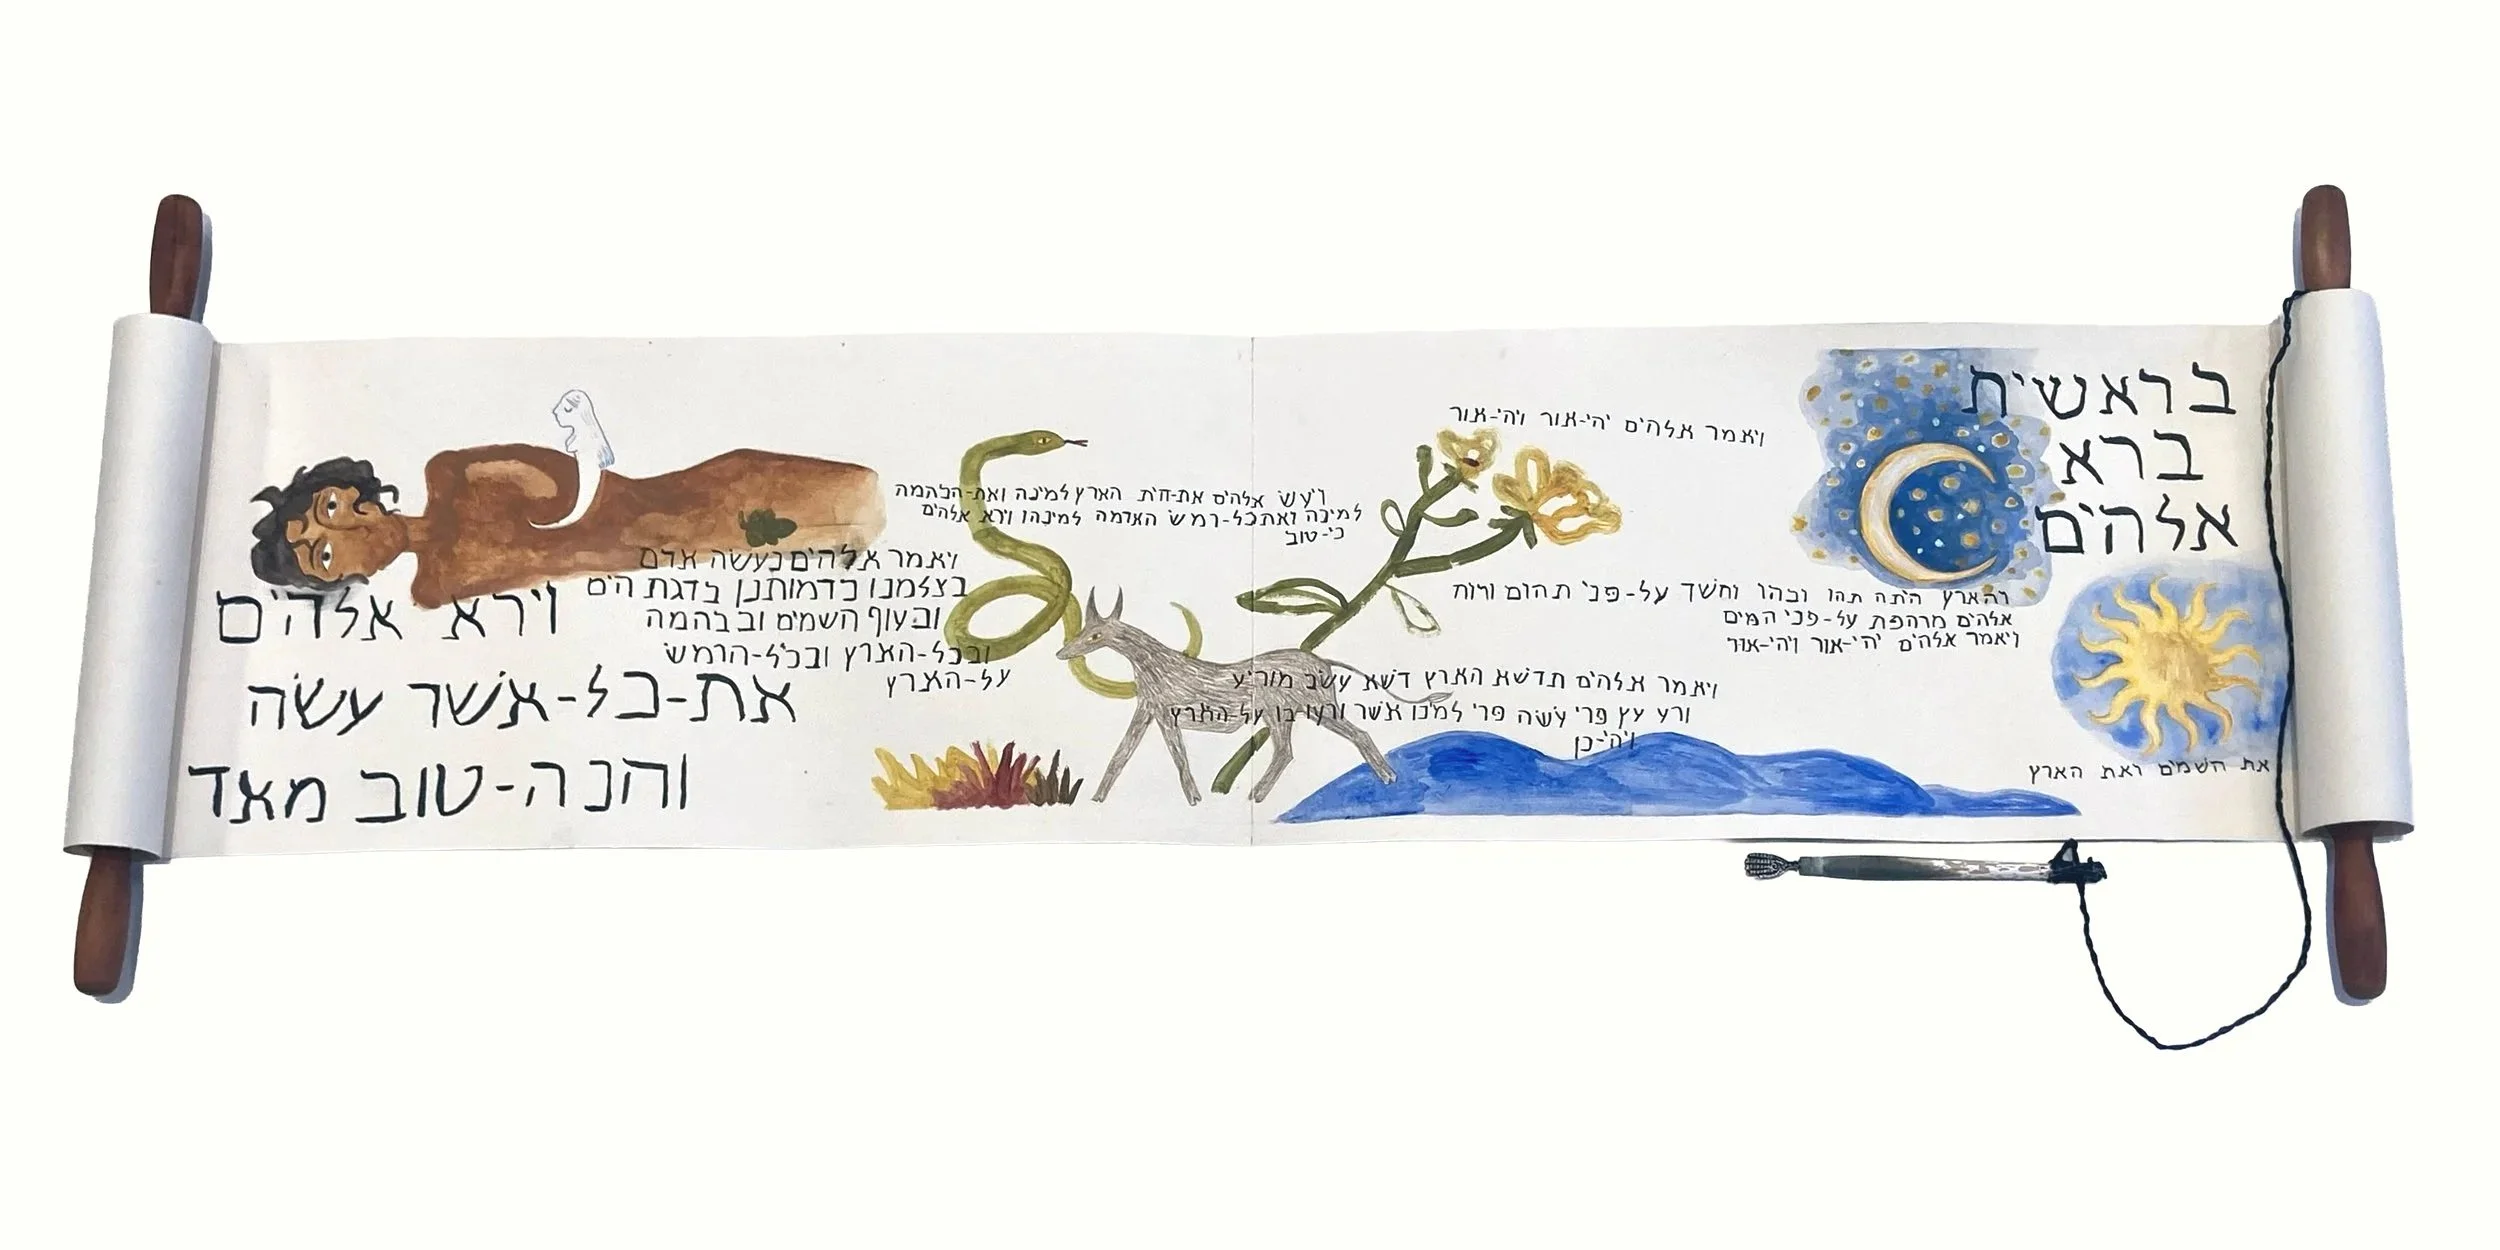 בראשית
ברא
אלהים
את השמים ואת הארץ
והארץ היתה תהו ובהו וחשך על-פני תהום ורוח
אלהים מרחפת על-פני המים
ויאמר אלהים יהי-אור ויהי-אור
ויאמר אלהים יהי-אור ויהי-אור
ויאמר אלהים תדשא הארץ דשא עשב מזריע
זרע עץ פרי עשה פרי למינו אשר זרעו-בו על-הארץ
ויהי-כן
ויעש אלהים את-חית הארץ למינה ואת-הבהמה
למינה ואת כל-רמש האדמה למינהו וירא אלהים
כי-טוב
ויאמר אלהים נעשה אדם
בצלמנו כדמותנו בדגת הים
ובעוף השמים ובבהמה
ובכל-הארץ ובכל-הרמש
על-הארץ
וירא אלהים
את-כל-אשר עשה
והנה-טוב מאד